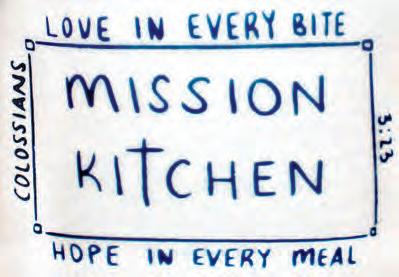 LOVE IN EVERY BITE
COLOSSIANS
MISSION
KITCHEN
3:23
HOPE IN EVERY MEAL